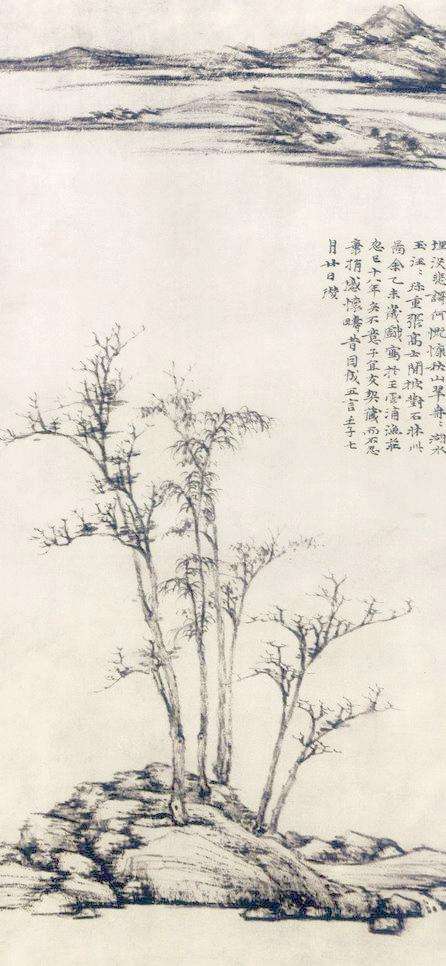 埋没悲謌何慨慷秋山翠冉〻湖水
玉汪〻珎重張高士閒披對石牀此
圖余乙未歲戲寫於王雲浦漁莊
忽已十八年矣不意子宜友契藏而不忍
棄捐感懷疇昔因成五言壬子七
月廿日瓚